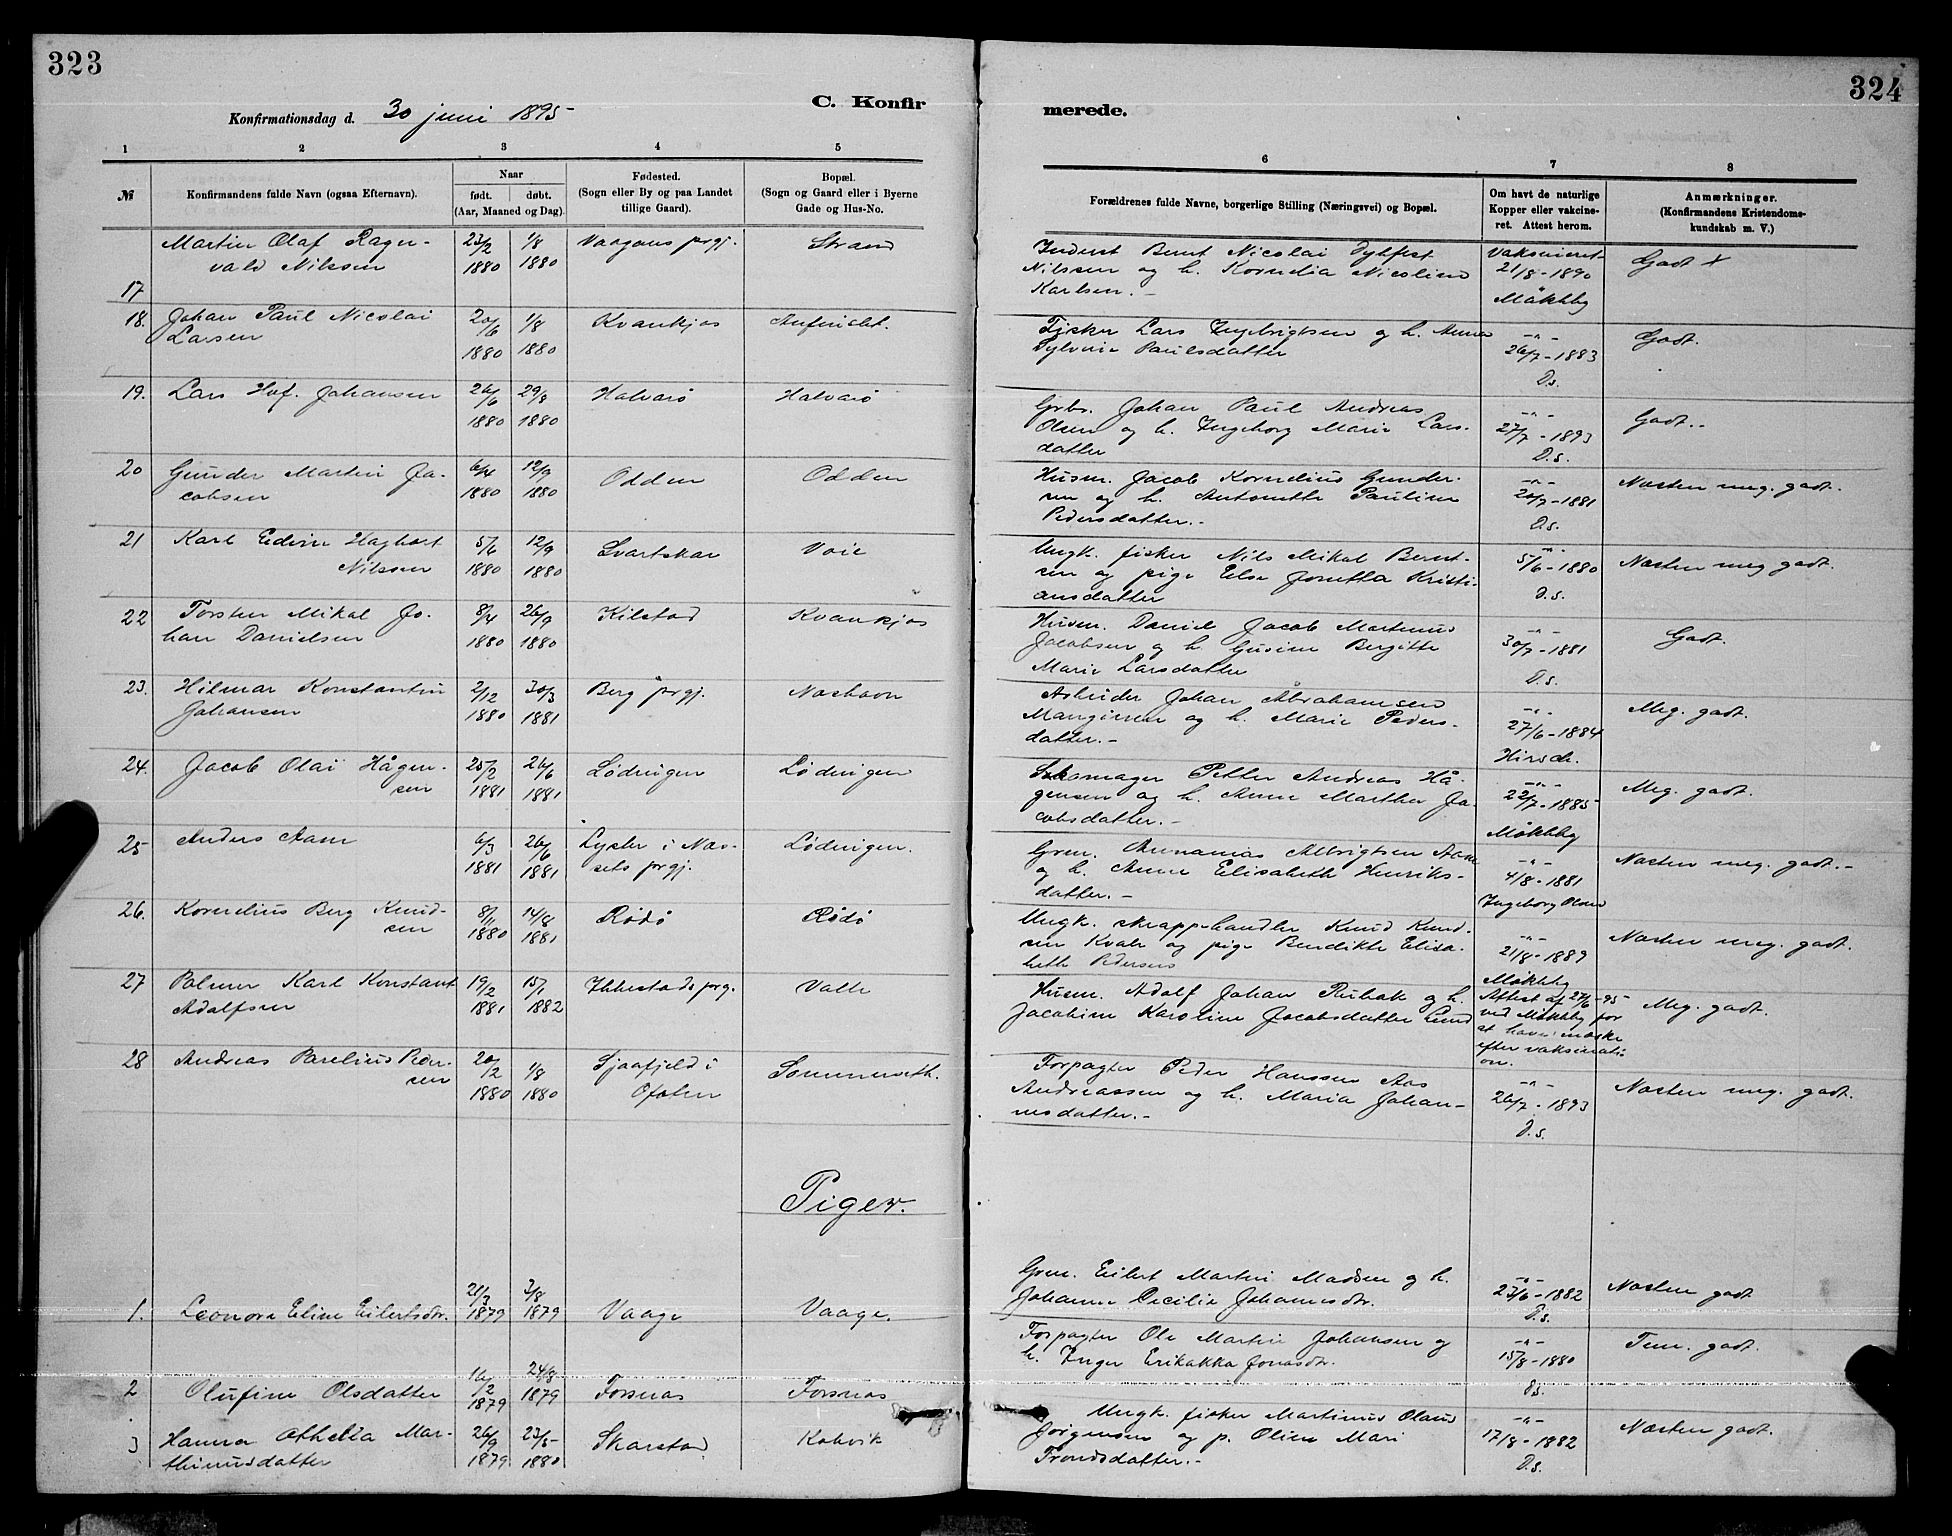 323
324
C. Konfir
merede.
Konfirmationsdag d. 30 juni 1895
1 2 3 4 5 6 7 8
№
Konfirmandens fulde Navn (ogsaa Efternavn).
Naar
født. døbt.
(Aar, Maaned og Dag)
Fødested.
(Sogn eller By og paa Landet
tillige Gaard).
Bopæl.
(Sogn og Gaard eller i Byerne
Gade og Hus-No.
Forældrenes fulde Navne, borgerlige Stilling (Næringsvei) og Bopæl.
Om havt de naturlige
Kopper eller vakcine-
ret. Attest herom.
Anmærkninger.
(Konfirmandens Kristendoms-
kundskab m. V.)
17 Martin Olaf Ragn-
vald Nilssen
23/2 1880
1/8 1880
Vaagans prgj.
Strand
Inderst Bernt Nicolai Sylfest
Nilssen og h. Kornelia Nicoline
Karlsen.-
Vaksineret
21/8-1890
Mökkby
Godt x
18. Johan Paul Nicolai
Larsen
20/6 1880
1/8 1880
Kvankjos
Fisker Lars Ingebrigtsen og h. Anne
Sylvnie Paulsdatter
-"-
26/7-1883
D.s.
Godt.
19. Lars Hof. Johansen
26/6 1880
29/8 1880
Halvarö
Halvarö
Grbr. Johan Paul Andreas
Olsen og h. Ingeborg Marie Lars-
datter
-"-
27/7-1893
D.s.
Godt.-
20 Gunder Martin Ja-
cobsen
6/4 1880
12/9 1880
Odden
Odden
Husm. Jacob Kornelius Gunder-
sen og h. Antonette Pauline
Pedersdatter.-
-"-
20/7-1881
D.s.
Næsten meg. godt.
21 Karl Edvin Haghart
Nilssen
5/6 1880
12/9 1880
Svartskar
Voie
Ungk. fisker Nils Mikal Bernt-
sen og pige Else Jonetta Kristi-
ansdatter
-"-
5/6-1880
D.s.
Næsten meg godt.
22 Torsten Mikal Jo-
han Danielsen
8/4 1880
26/9 1880
Kilstad
Kvankjos
Husm. Daniel Jacob Martinus
Jacobsen og h. Gusine Bergitte
Marie Larsdatter
-"-
30/7-1881
D.s.
Godt.
23. Hilmar Konstantin
Johansen
2/12 1880
30/3 1881
Berg prgj.
Næshavn
Arbeider Johan Abrahamsen
Mangersen og h. Marie Peders-
datter.-
-"-
27/6-1884
Hirsch.
Meg. godt.
24. Jacob Olai Hågen-
sen
25/2 1881
26/6 1881
Lødingen
Lødingen
Skomager Petter Andreas Hå-
gensen og h. Anne Marthea Ja-
cobsdatter.-
-"-
22/7-1885
Mökkby
Meg. godt.
25 Anders Aam
6/3 1881
26/6 1881
Lyster i Næs-
sets prgj.
Lødingen.
Grm. Ananias Albrigtsen Aam
og h. Anne Elisabeth Henriks-
datter.-
-"-
4/8-1881
Ingeborg Olsen
Næsten meg. godt.-
26. Kornelius Berg Knud-
sen
8/11 1880
14/8 1881
Rödö
Rödö
Ungk. skrappehandler Knud Knud-
sen Kvale og pige Bendikte Elisa-
beth Pedersen
-"-
21/8-1889
Mökkby
Næsten meg. godt.
27 Palmer Karl Konstant
Adolfsen
19/2 1881
15/1 1882
Ibbestads prg.
Valle
Husm. Adolf Johan Rubak og h.
Jacobine Karoline Jacobsdatter Lund
Attest af 27/6-95
ved Mökkby for
at have mæske
efter vaksinati-
on.
Meg. godt.
28 Andreas Parelius Peder-
sen
20/2 1880
1/8 1880
Sjaafjeld i
Ofoten
Sommerseth.
Forpagter Peder Hanssen Aas
Andreassen og h. Maria Johan-
nesdatter.-
-"-
26/7-1893
D.s.
Næsten meg. godt.
Piger.
1. Leonora Eline Eilertsdtr.
21/3 1879
3/8 1879
Vaage
Vaage.
Grm. Eilert Martin Madsen og h.
Johanne Cecilie Johannesdtr.
-"-
23/6-1882
D.s.
Næsten godt
2 Olufine Olsdatter
16/2 1879
24/8 1879
Forsnæs
Forsnæs
Forpagter Ole Martin Johansen og
h. Inger Erikakka Jonasdtr.
-"-
15/8-1880
D.s.
Tem. godt.
3 Hanna Othelia Mar-
thinusdatter
26/9 1879
23/5 1880
Skarstad
Kobvik
Ungk. fisker Martinus Olaus
Jørgensen og p. Oline Mari
Trondsdatter.-
-"-
17/8-1882
D.s.
Næsten godt.